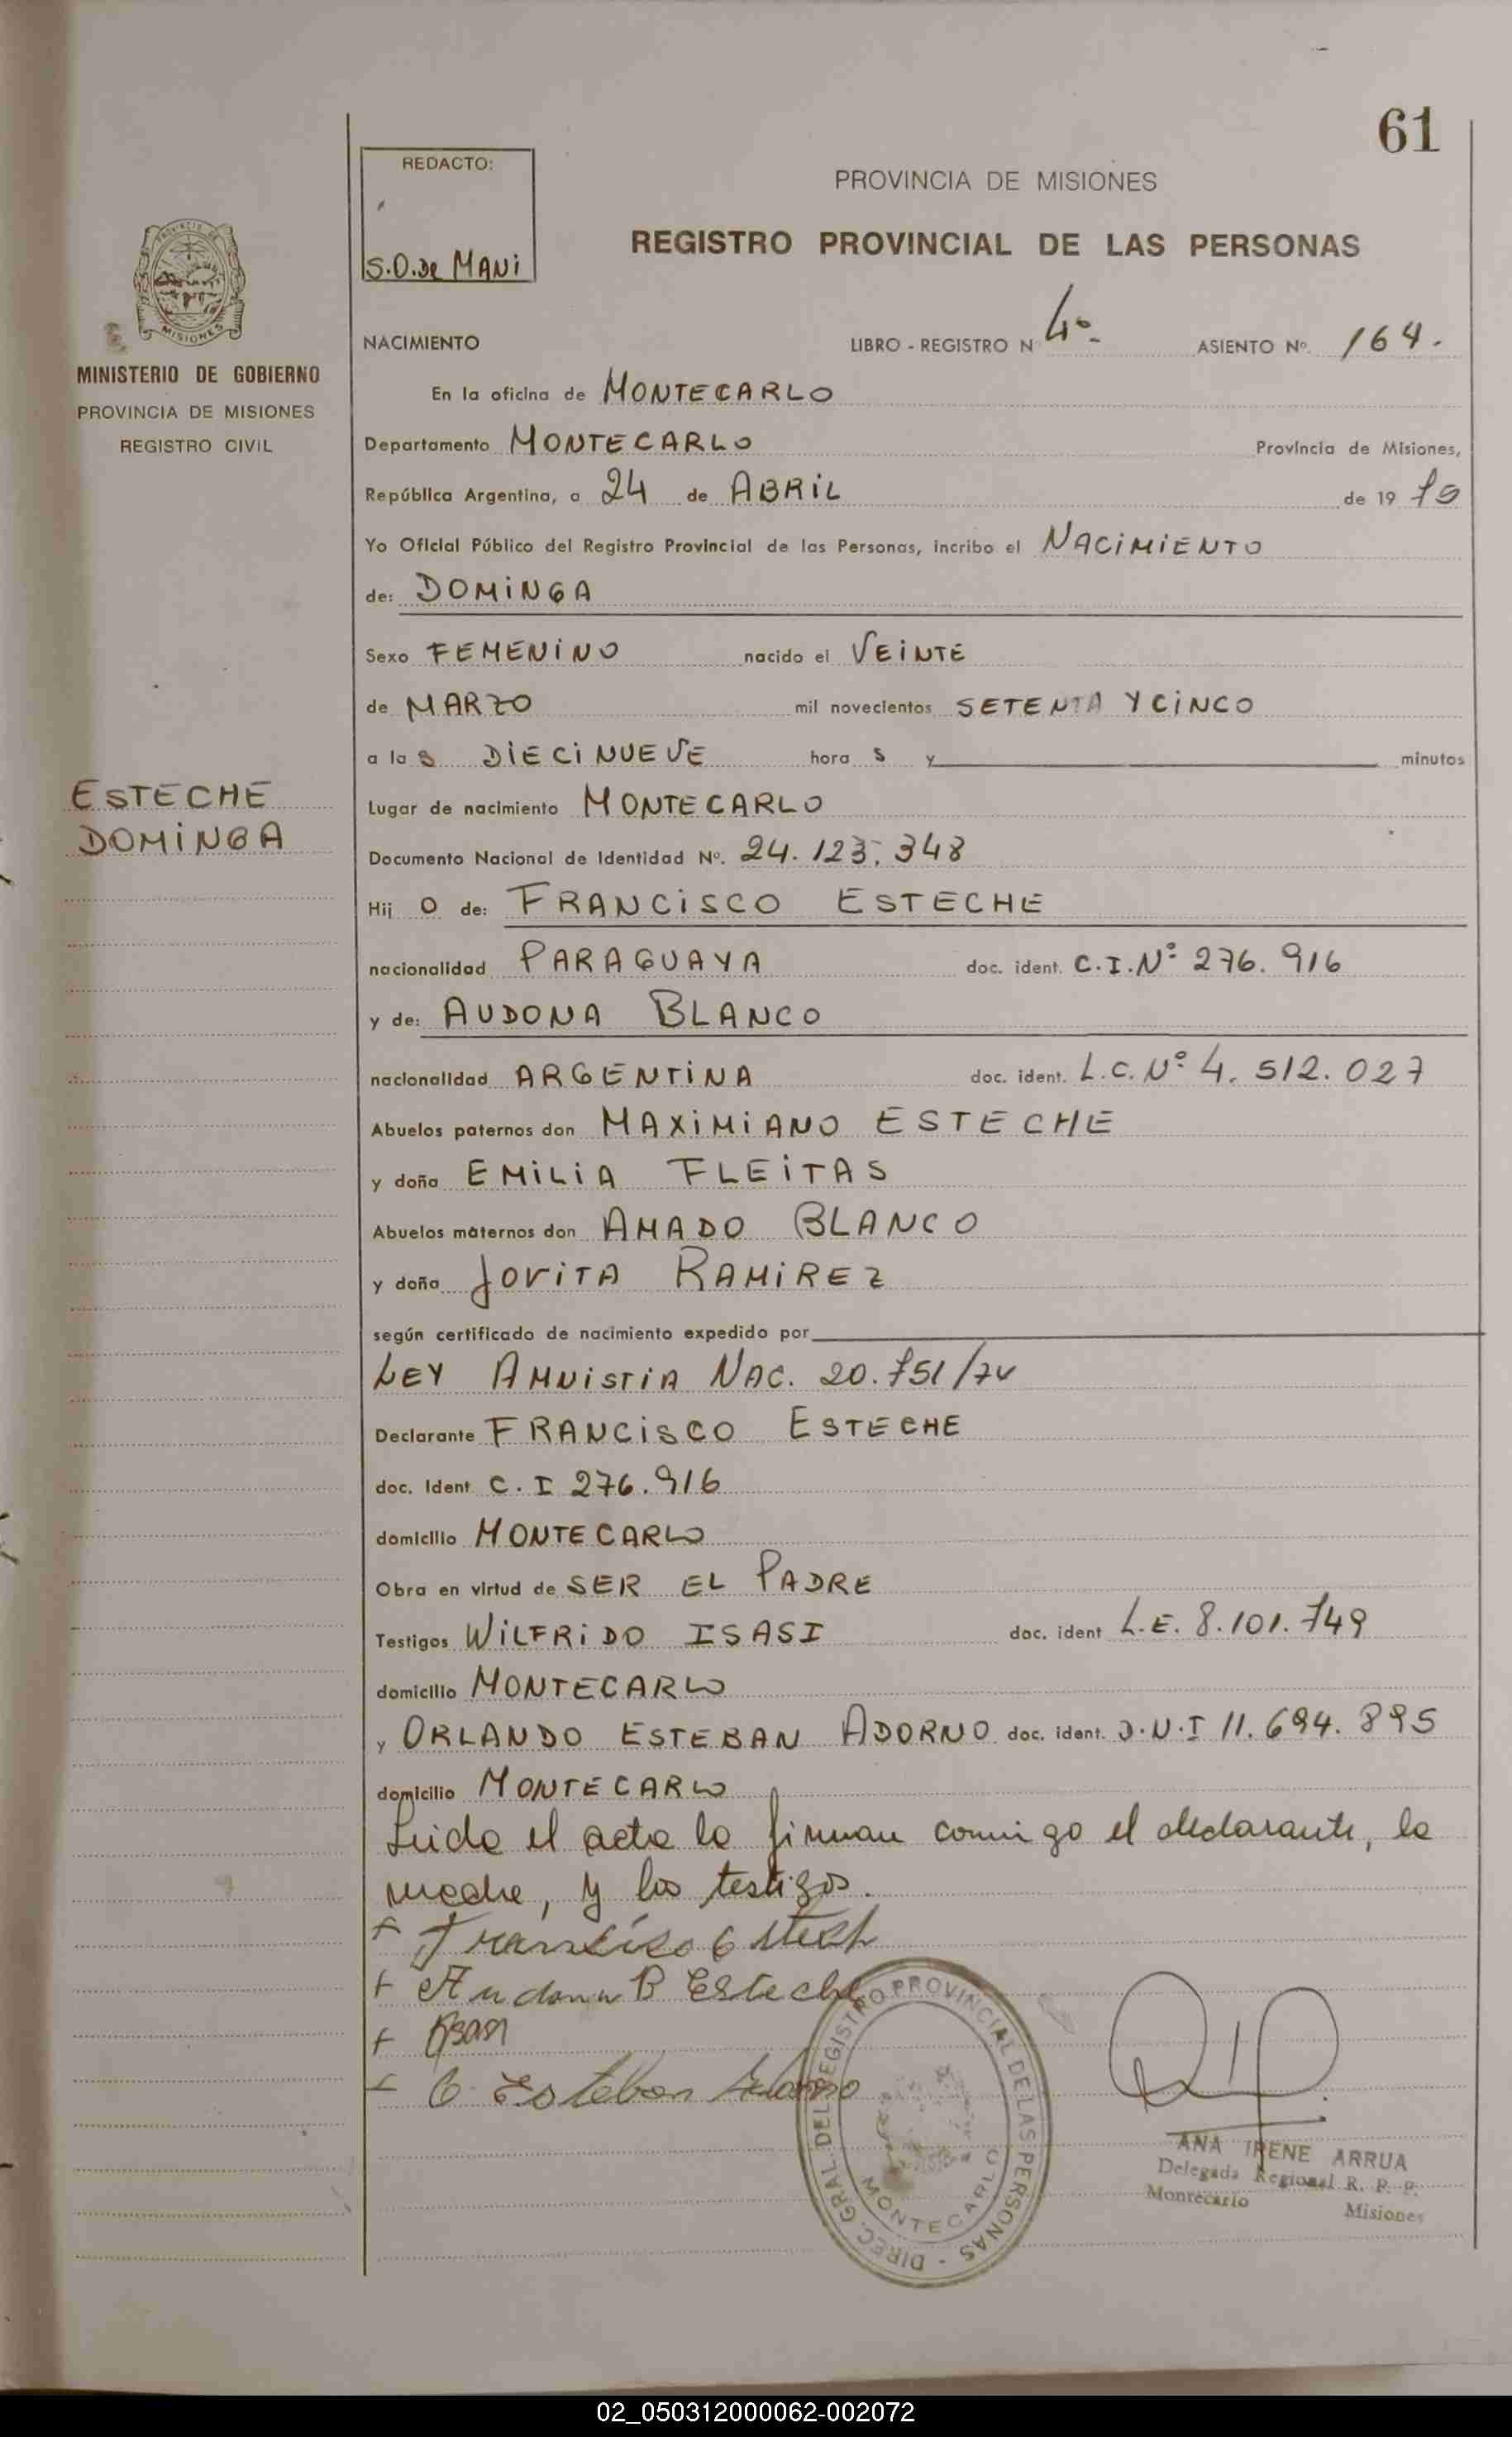 61
REDACTO:
S.O.de MANI
PROVINCIA DE MISIONES
REGISTRO PROVINCIAL DE LAS PERSONAS
MISIONES
MINISTERIO DE GOBIERNO
PROVINCIA DE MISIONES
REGISTRO CIVIL
NACIMIENTO LIBRO - REGISTRO N 4º- ASIENTO Nº. 164.
En la oficina de MONTECARLO
Departamento MONTECARLO Provincia de Misiones,
República Argentina, a 24 de ABRIL de 19
Yo Oficial Público del Registro Provincial de las Personas, incribo el NACIMIENTO
de: DOMINGA
Sexo FEMENINO nacido el VEINTE
de MARZO mil novecientos SETENTA Y CINCO
a las DIECINUEVE hora s y minutos
ESTECHE
DOMINGA
Lugar de nacimiento MONTECARLO
Documento Nacional de Identidad Nº. 24.123.348
Hij O de: FRANCISCO ESTECHE
nacionalidad PARAGUAYA doc. ident. C.I.Nº 276.916
y de: AUDONA BLANCO
nacionalidad ARGENTINA doc. ident. L.C.Nº 4.512.027
Abuelos paternos don MAXIMIANO ESTECHE
y doña EMILIA FLEITAS
Abuelos maternos don AMADO BLANCO
y doña JOVITA RAMIREZ
según certificado de nacimiento expedido por
LEY AMNISTIA NAC. 20.751/74
Declarante FRANCISCO ESTECHE
doc. Ident C.I 276.916
domicilio MONTECARLO
Obra en virtud de SER EL PADRE
Testigos WILFRIDO ISASI doc. ident L.E. 8.101.749
domicilio MONTECARLO
y ORLANDO ESTEBAN ADORNO doc. ident. D.N.I 11.694.895
domicilio MONTECARLO
Leida el acta la firman conmigo el declarante, la
madre, y los testigos.
+ Francisco Estech
+ Audona B Esteche
+ Isasi
+ O Esteban Adorno
DIREC. GRAL. DEL REGISTRO PROVINCIAL DE LAS PERSONAS -
MONTECARLO
ANA IRENE ARRUA
Delegada Regional R. P. P.
Montecarlo Misiones
02_050312000062-002072